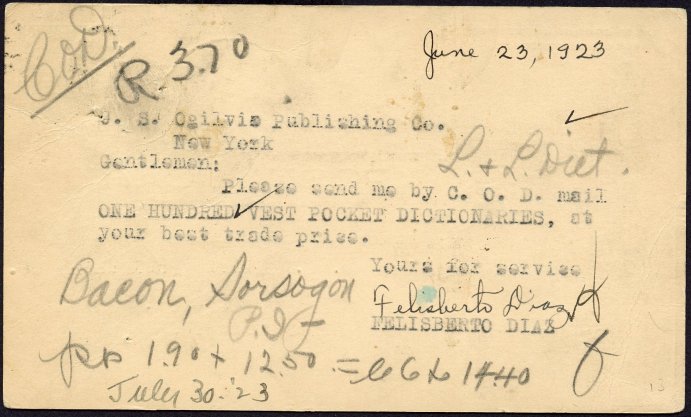 C.O.D.
R 3.70
June 23, 1923
J. S. Ogilvie Publishing Co.
New York
Gentlemen:
L. & L. Dict.
Please send me by C. O. D. mail
ONE HUNDRED VEST POCKET DICTIONARIES, at
your best trade price.
Yours for service
Bacon, Sorsogon
P.I.
Felisberto Diaz
FELISBERTO DIAZ
1.90 + 12.50 = 14.40
July 30-'23
13